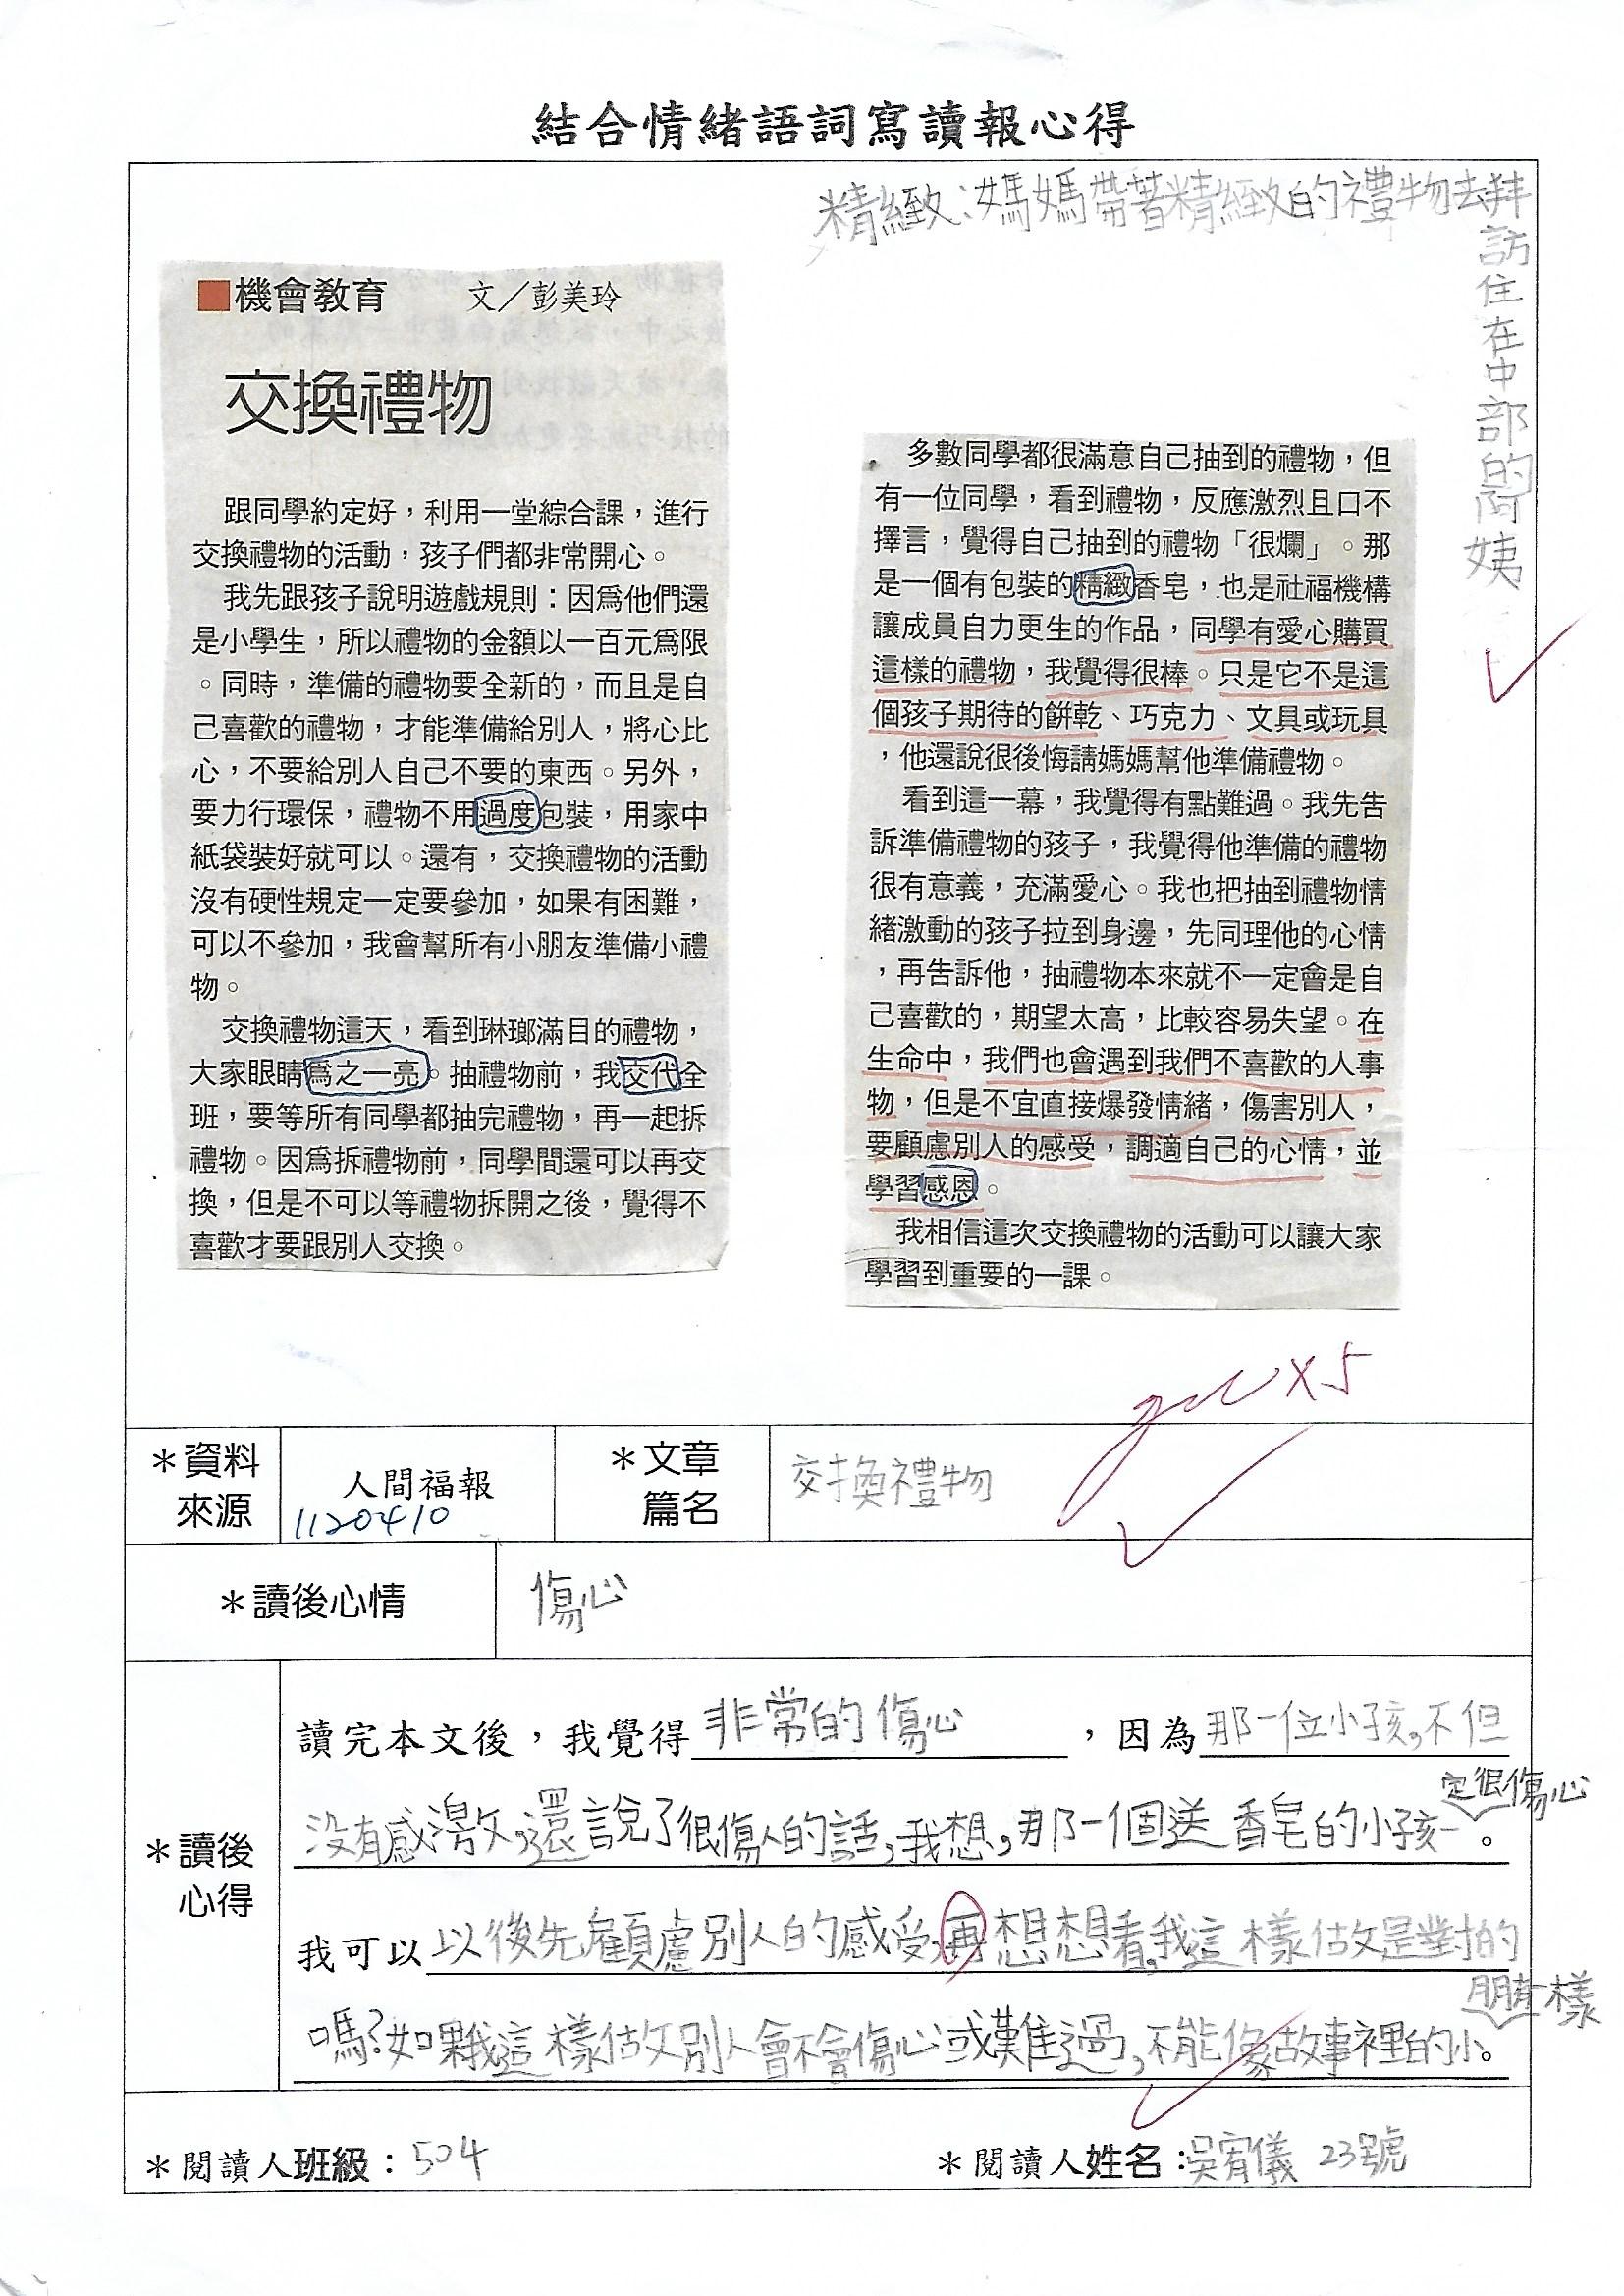 結合情緒語詞寫讀報心得
精緻:媽媽帶著精緻的禮物去拜訪住在中部的阿姨
■機會教育 文／彭美玲
交換禮物
跟同學約定好，利用一堂綜合課，進行
交換禮物的活動，孩子們都非常開心。
我先跟孩子說明遊戲規則：因為他們還
是小學生，所以禮物的金額以一百元為限
。同時，準備的禮物要全新的，而且是自
己喜歡的禮物，才能準備給別人，將心比
心，不要給別人自己不要的東西。另外，
要力行環保，禮物不用過度包裝，用家中
紙袋裝好就可以。還有，交換禮物的活動
沒有硬性規定一定要參加，如果有困難，
可以不參加，我會幫所有小朋友準備小禮
物。
交換禮物這天，看到琳瑯滿目的禮物，
大家眼睛為之一亮。抽禮物前，我交代全
班，要等所有同學都抽完禮物，再一起拆
禮物。因為拆禮物前，同學間還可以再交
換，但是不可以等禮物拆開之後，覺得不
喜歡才要跟別人交換。
多數同學都很滿意自己抽到的禮物，但
有一位同學，看到禮物，反應激烈且口不
擇言，覺得自己抽到的禮物「很爛」。那
是一個有包裝的精緻香皂，也是社福機構
讓成員自力更生的作品，同學有愛心購買
這樣的禮物，我覺得很棒。只是它不是這
個孩子期待的餅乾、巧克力、文具或玩具
，他還說很後悔請媽媽幫他準備禮物。
看到這一幕，我覺得有點難過。我先告
訴準備禮物的孩子，我覺得他準備的禮物
很有意義，充滿愛心。我也把抽到禮物情
緒激動的孩子拉到身邊，先同理他的心情
，再告訴他，抽禮物本來就不一定會是自
己喜歡的，期望太高，比較容易失望。在
生命中，我們也會遇到我們不喜歡的人事
物，但是不宜直接爆發情緒，傷害別人，
要顧慮別人的感受，調適自己的心情，並
學習感恩。
我相信這次交換禮物的活動可以讓大家
學習到重要的一課。
x5
＊資料來源
人間福報
1120410
＊文章篇名
交換禮物
＊讀後心情
傷心
＊讀後心得
讀完本文後，我覺得非常的傷心，因為那一位小孩,不但
沒有感激,還說了很傷人的話,我想,那一個送香皂的小孩一定很傷心。
我可以以後先顧慮別人的感受,再想想看,我這樣做是對的
嗎?如果我這樣做別人會不會傷心或難過,不能像故事裡的小朋友一樣。
＊閱讀人班級：504
＊閱讀人姓名：吳宥儀 23號